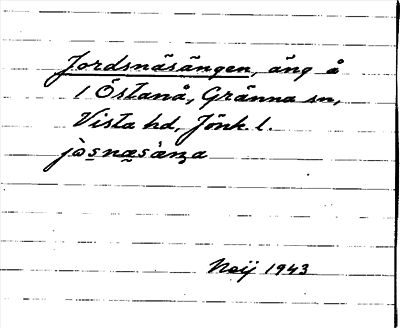 Jordsnäsängen, äng å
1 Östanå, Gränna sn,
Vista hd, Jönk. l.
Neij 1943